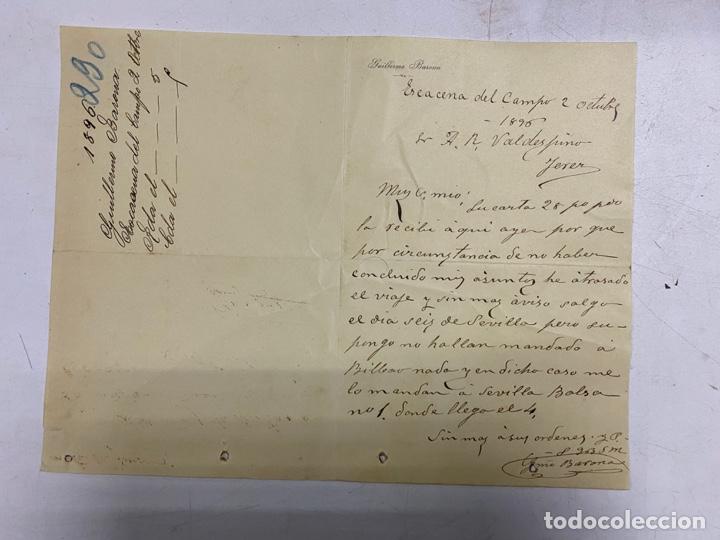 290
1896
Guillermo Barona
Escacena del Campo 2 Octbre
Rda el — — 5
Cda el — — 
Guillermo Barona
Escacena del Campo 2 octubre
- 1896
Sr A. R. Valdespino
Jerez
Muy S. mio; Su carta 28 po po
la recibí aqui ayer por que
por circunstancia de no haber
concluido mis asuntos he atrasado
el viaje y sin mas aviso salgo
el dia seis de Sevilla pero su-
pongo no hallan mandado á
Bilbao nada y en dicho caso me
lo mandan á Sevilla Bolsa
no 1. donde llego el 4.
Sin mas á sus ordenes
S S Q B S M
Barona
todocoleccion
todocoleccion.net